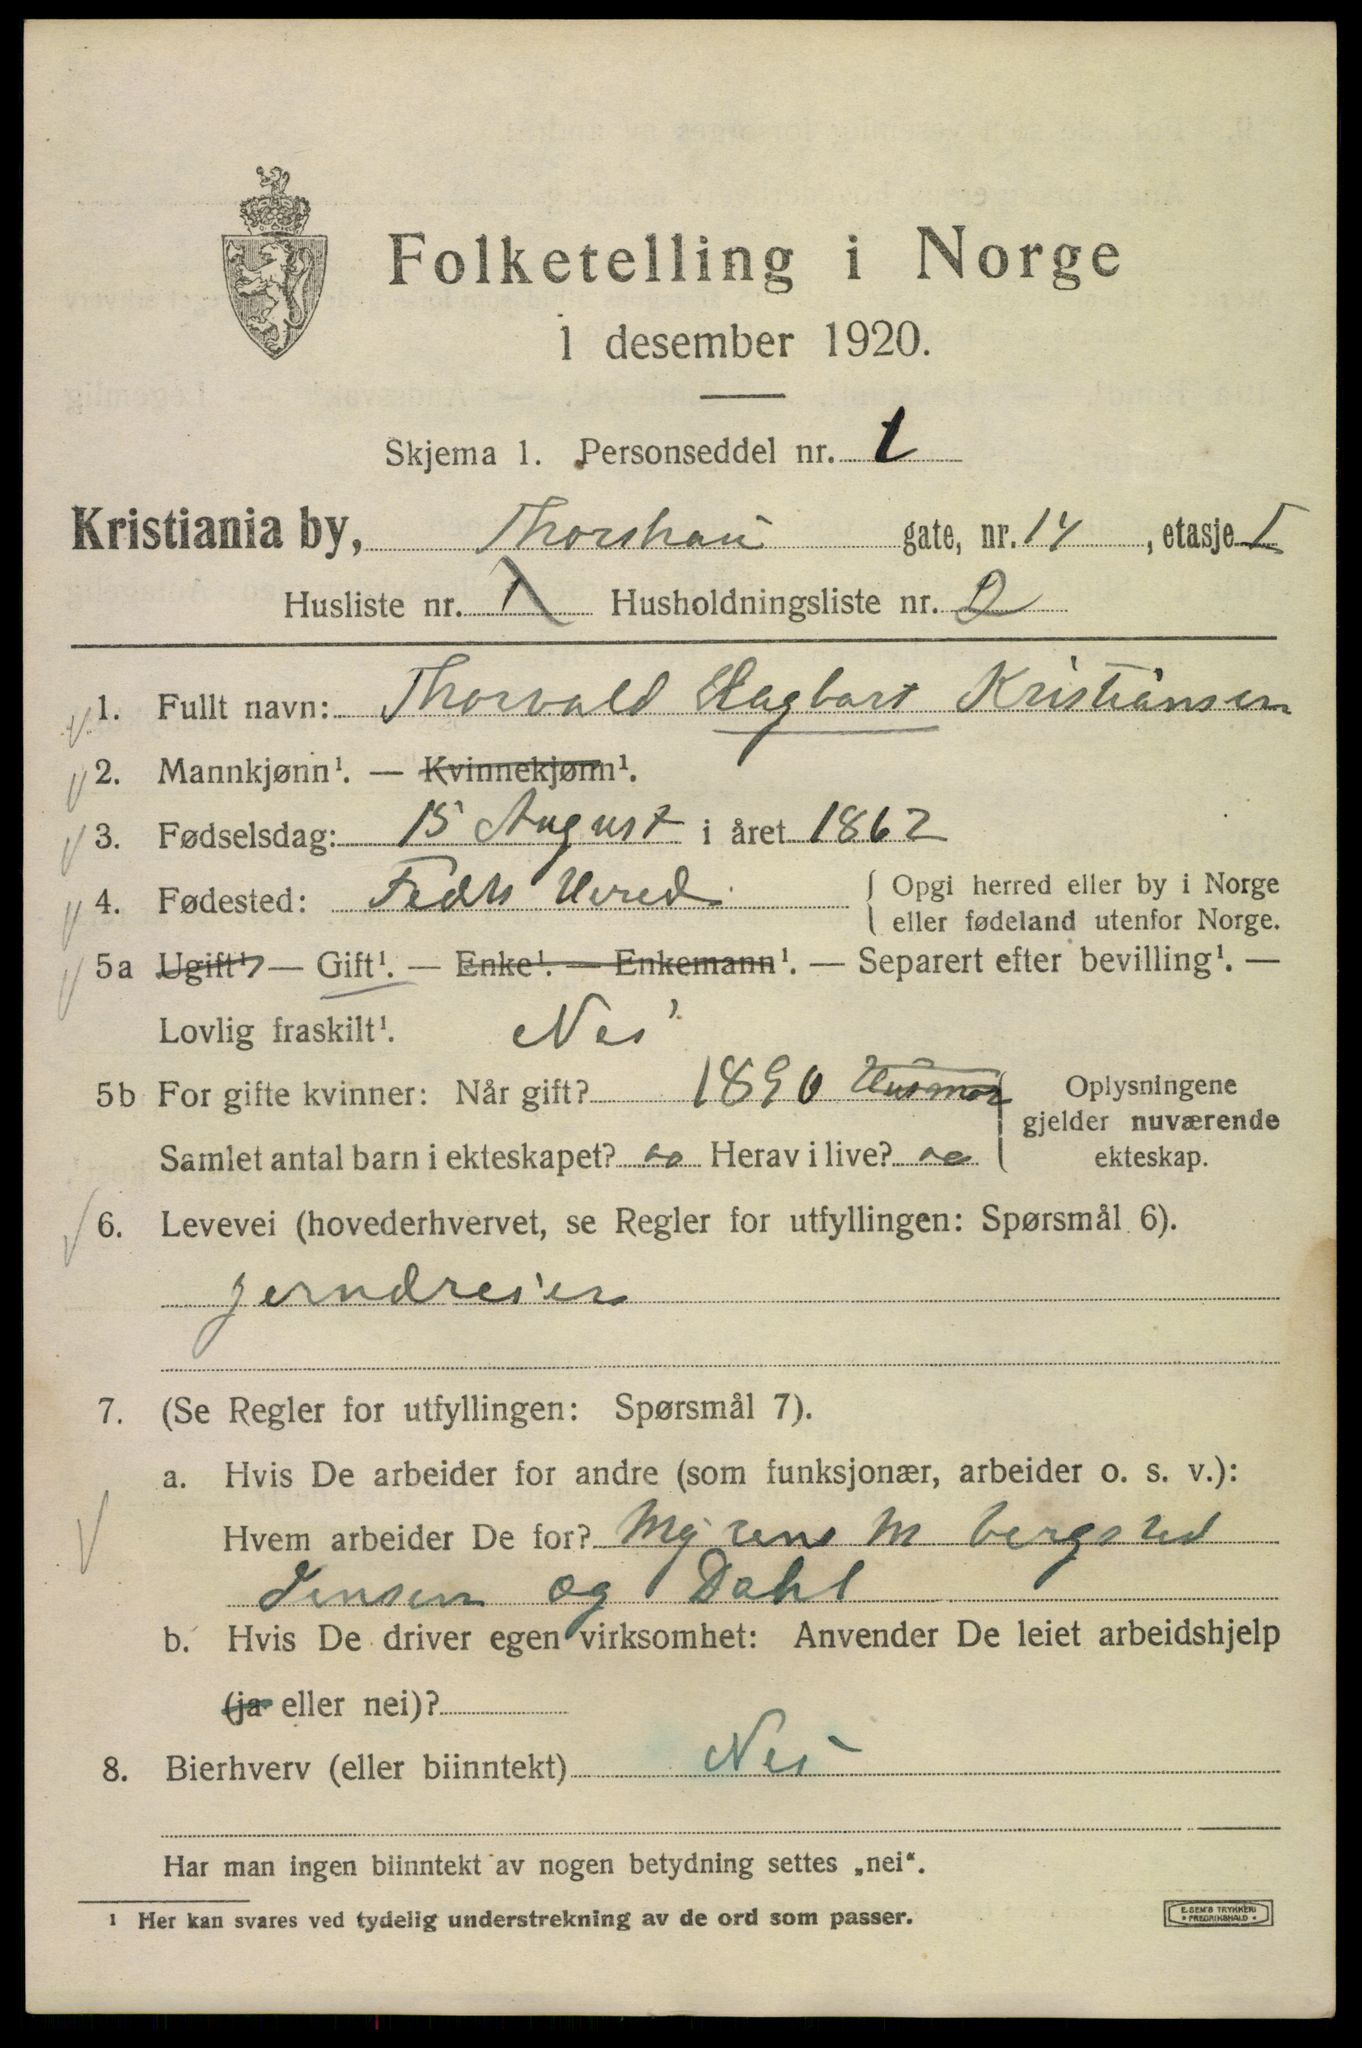 Folketelling i Norge
1 desember 1920.
Skjema 1. Personseddel nr. 1
Kristiania by, Thorshau gate, nr. 14, etasje I
Husliste nr. 1 Husholdningsliste nr. 2
1. Fullt navn: Thorvald Hagbart Kristiansen
2. Mannkjønn¹. — Kvinnekjønn¹.
3. Fødselsdag: 15 August i året 1862
4. Fødested: Feds Hered { Opgi herred eller by i Norge
eller fødeland utenfor Norge.
5a Ugift¹ — Gift¹. — Enke¹. — Enkemann¹. — Separert efter bevilling¹. —
Lovlig fraskilt¹. Nei
5b For gifte kvinner: Når gift? 1890 Husmor { Oplysningene
gjelder nuværende
Samlet antal barn i ekteskapet? Herav i live? ekteskap.
6. Levevei (hovederhvervet, se Regler for utfyllingen: Spørsmål 6).
jerndreier
7. (Se Regler for utfyllingen: Spørsmål 7).
a. Hvis De arbeider for andre (som funksjonær, arbeider o. s. v.):
Hvem arbeider De for? Myrens M bergsted
Jensen og Dahl
b. Hvis De driver egen virksomhet: Anvender De leiet arbeidshjelp
(ja eller nei)?
8. Bierhverv (eller biinntekt) Nei
Har man ingen biinntekt av nogen betydning settes „nei“.
¹ Her kan svares ved tydelig understrekning av de ord som passer.
E. SEM'S TRYKKERI
FREDRIKSHALD